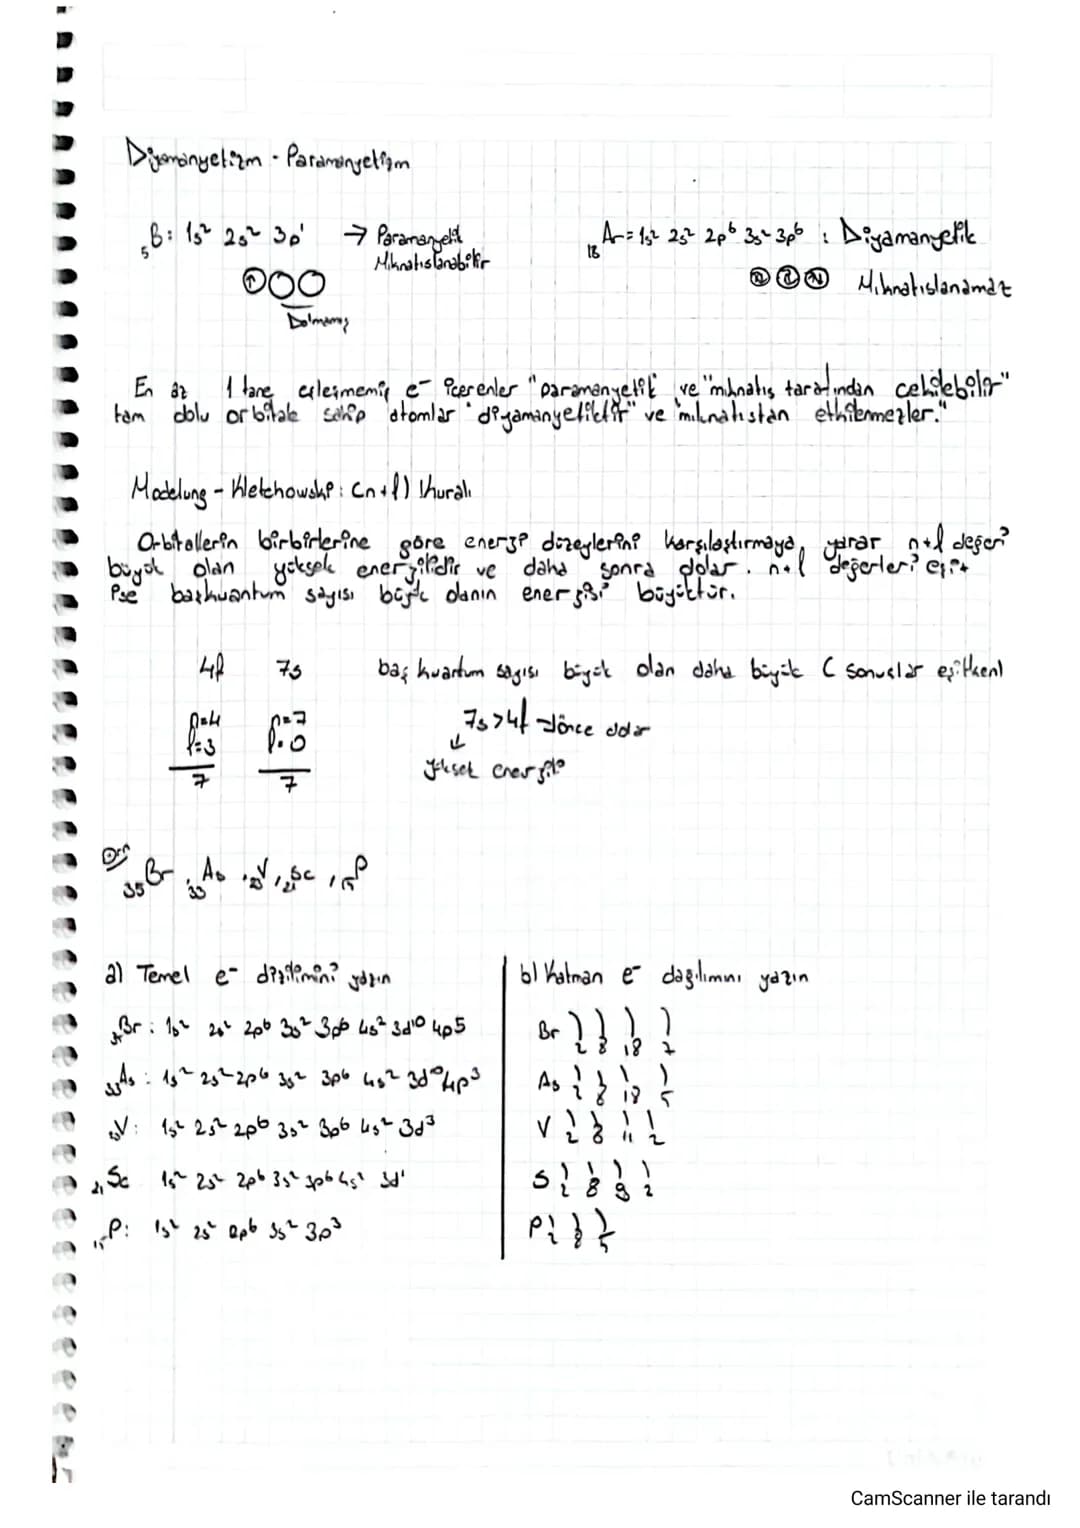 Diyamanyetizm - Paramanyetizm
5B: 1s² 2s² 3p¹ → Paramanyetik
Mıknatıslanabilir
Dolmamış
18Ar = 1s² 2s² 2p⁶ 3s² 3p⁶ : Diyamanyetik
Mıknatıslanamaz
En az 1 tane eşleşmemiş e⁻ içerenler "paramanyetik" ve "mıknatıs tarafından çekilebilir"
tam dolu orbitale sahip atomlar "diyamanyetiktir" ve "mıknatıstan etkilenmezler."
Madelung - Kletchowski : (n+l) kuralı
Orbitallerin birbirlerine göre enerji düzeylerini karşılaştırmaya yarar n+l değeri
büyük olan yüksek enerjilidir ve daha sonra dolar. n+l değerleri eşit
ise başkuantum sayısı büyük olanın enerjisi büyüktür.
4f 7s baş kuantum sayısı büyük olan daha büyük ( sonuçlar eşitken)
n=4 n=7 7s>4f → önce dolar
l=3 l=0 ↓
7 7 yüksek enerjili
Örn
35Br, 33As, 23V, 21Sc, 15P
a) Temel e⁻ dizilimini yazın
35Br : 1s² 2s² 2p6 3s² 3p6 4s² 3d¹⁰ 4p5
33As : 1s² 2s² 2p6 3s² 3p6 4s² 3d¹⁰ 4p³
23V: 1s² 2s² 2p6 3s² 3p6 4s² 3d³
21Sc 1s² 2s² 2p6 3s² 3p6 4s² 3d¹
15P: 1s² 2s² 2p6 3s² 3p³
b) Katman e⁻ dağılımını yazın
Br ) ) ) )
2 8 18 7
As ) ) ) )
2 8 18 5
V ) ) ) )
2 8 11 2
S ) ) ) )
2 8 9 2
P ) ) )
2 8 5
CamScanner ile tarandı